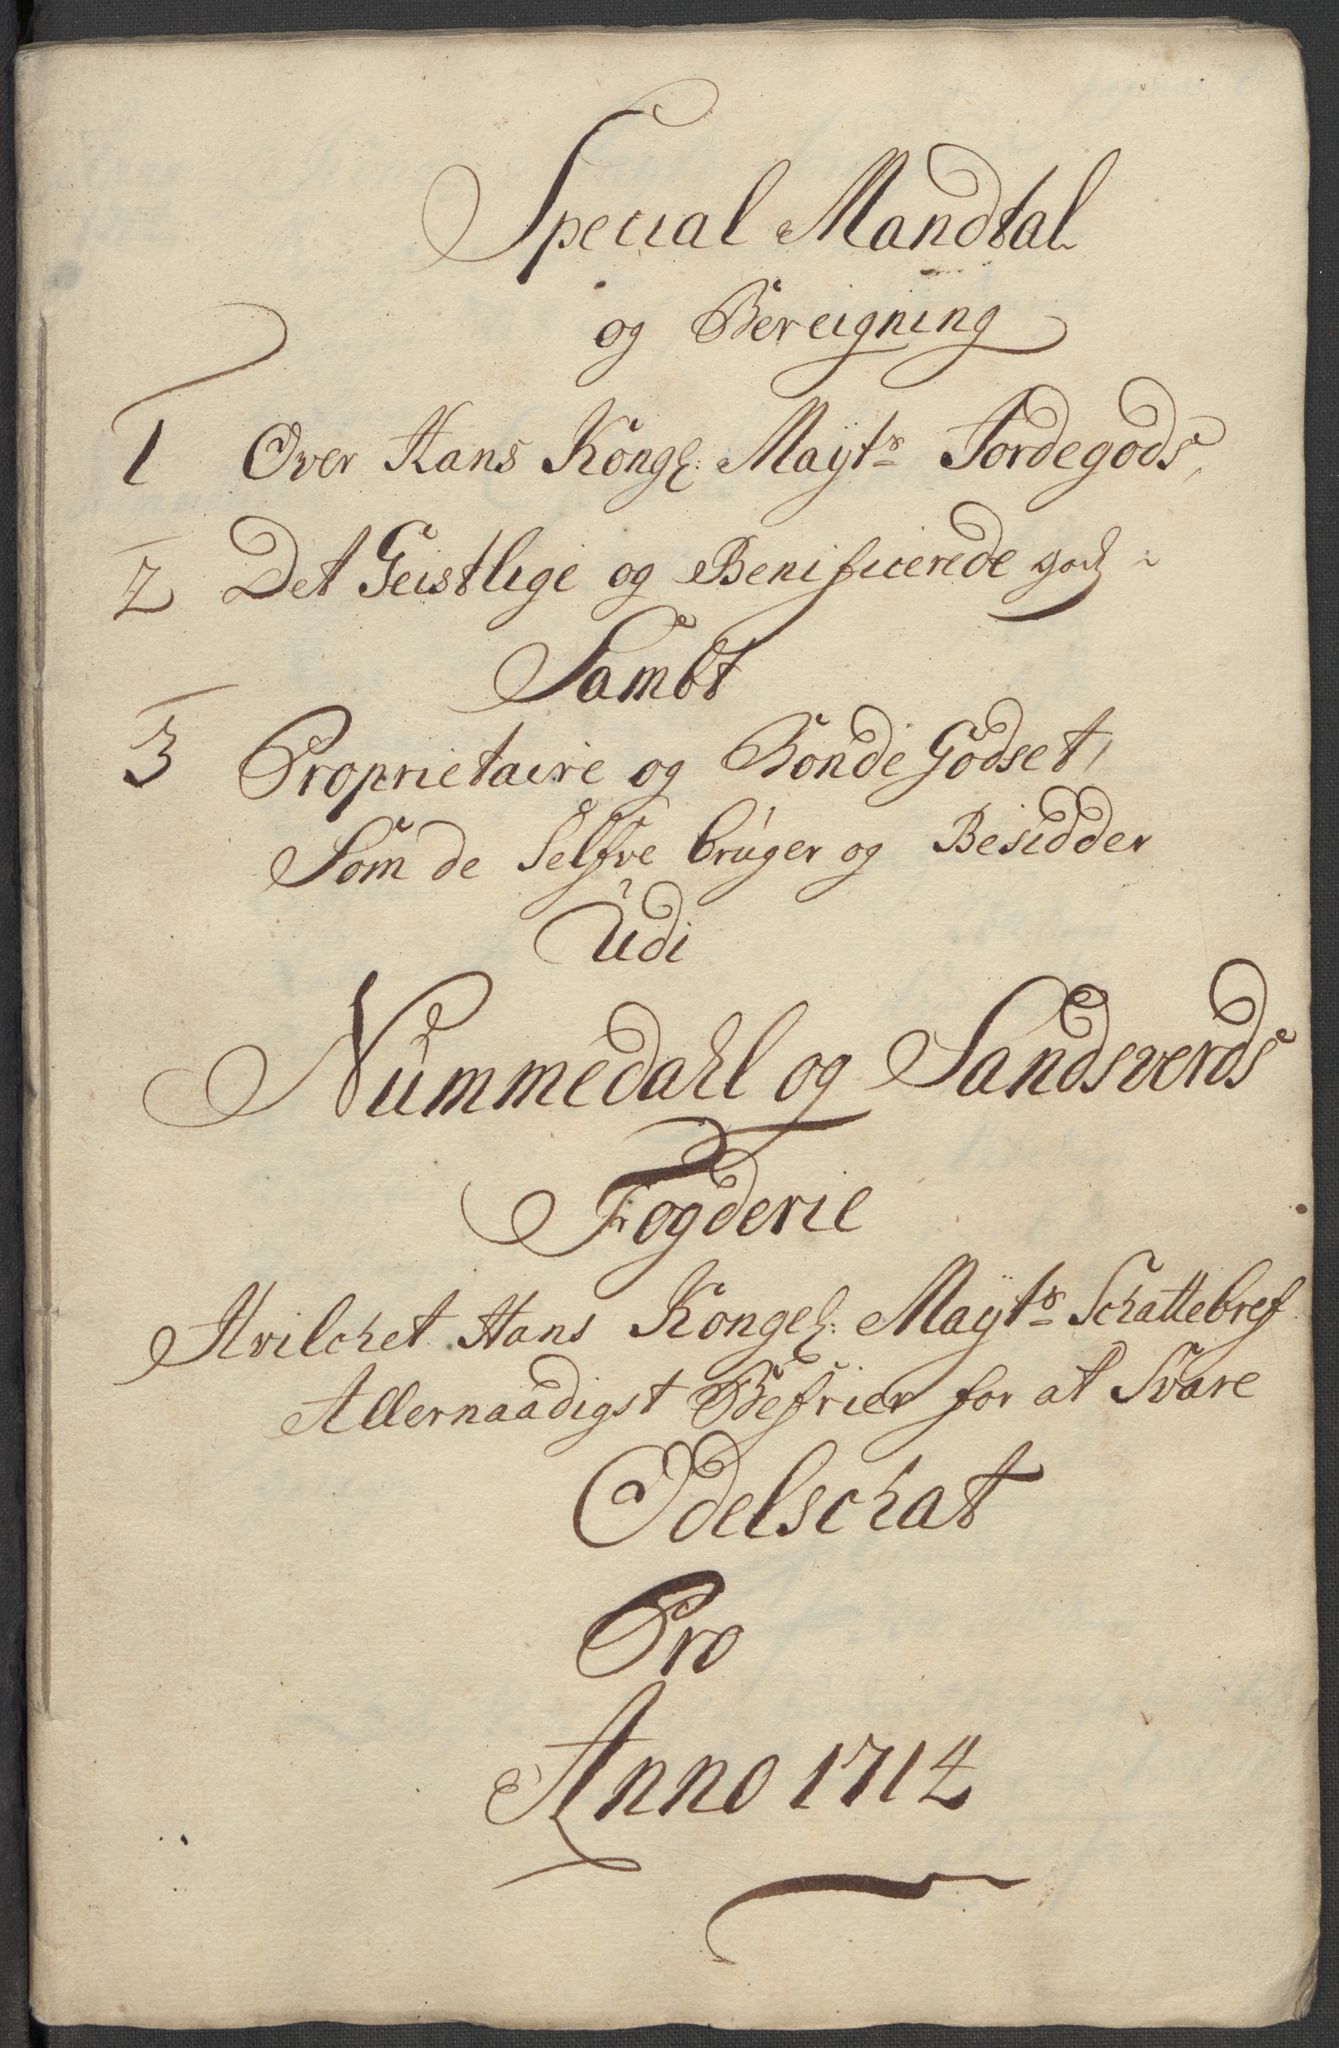 Special Mandtal
og Bereigning
1 Over Hans Kongl: Mayts Jordegods,
2 Det Geistlige og Benificerede godz
Sambt
3 Proprietaire og Bonde Godset,
Som de Selfve brúger og Besidder
Udi
Nummedahl og Sandsverds
Fogderie
Hvilchet Hans Kongel: Mayts Schattebref
Allernaadigst Befrier for at Svare
Odelschat
Pro
Anno 1714